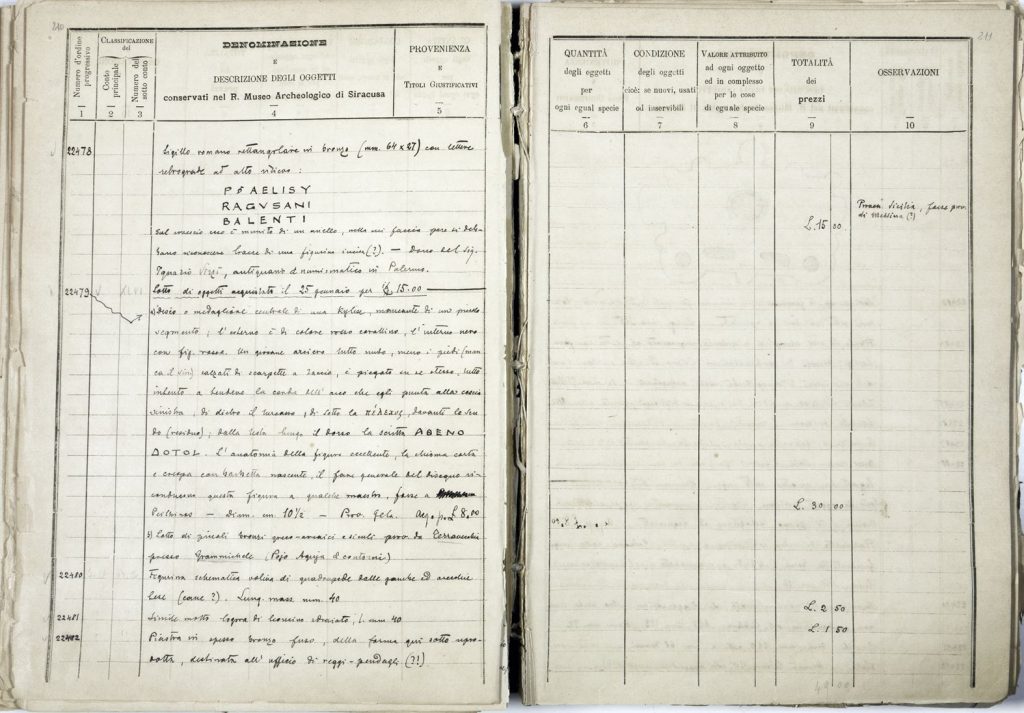 210
Numero d'ordine progressivo
CLASSIFICAZIONE
del
Conto principale
Numero del sotto conto
DENOMINAZIONE
E
DESCRIZIONE DEGLI OGGETTI
conservati nel R. Museo Archeologico di Siracusa
PROVENIENZA
E
TITOLI GIUSTIFICATIVI
1 2 3 4 5
22478 Sigillo romano rettangolare in bronzo (mm. 64 x 27) con lettere
retrograde ad alto rilievo :
AELISY
RAGVSANI
BALENTI
Sul rovescio esso è munito di un anello, nella cui faccia pare si deb-
bano riconoscere tracce di una figurina incisa (?). — Dono del Sig.
Ignazio Virzì, antiquario e numismatico in Palermo.
22479 Lotto di oggetti acquistato il 25 gennaio per £ 15.00
a) Disco o medaglione centrale di una Kylix, mancante di un piccolo
segmento ; l'esterno è di colore rosso corallino, l'interno nero
con fig. rossa. Un giovane arciero tutto nudo, meno i piedi (man
ca il ) calzati di scarpette a laccio, è piegato in se stesso, tutto
intento a tendere la corda dell' arco che egli punta alla coscia
sinistra ; di dietro il turcasso, di sotto la πέλεκυς, davanti lo scu-
do (residuo) ; dalla testa lungo il dorso la scritta ABENO
DOTOL. L'anatomia della figura eccellente, la chioma corta
e crespa con barbetta nascente, il fare generale del disegno ri-
conducono questa figura a qualche maestro, forse a
— Diam. cm 10½ — Prov. Gela. Acq. p. £ 8.00
b) Lotto di piccoli bronzi greco-arcaici e siculi prov. da Terravecchia
presso Grammichele (Pojo Aquja e contorni)
22480 Figurina schematica votiva di quadrupede dalle gambe ed orecchie
tese (cane ?). Lung. mass. mm 40
22481 Simile molto logora di leoncino sdraiato, l. mm 40
22482 Piastra in spesso bronzo fuso, della forma qui sotto ripro-
dotta, destinata all' ufficio di reggi-pendagli (?!)
211
QUANTITÀ
degli oggetti
per
ogni egual specie
CONDIZIONE
degli oggetti
cioè: se nuovi, usati
od inservibili
VALORE ATTRIBUITO
ad ogni oggetto
ed in complesso
per le cose
di eguale specie
TOTALITÀ
dei
prezzi
OSSERVAZIONI
6 7 8 9 10
L. 15 00
Sicilia, forse prov.
di Messina (?)
L. 30 00
L. 2 50
L. 1 50